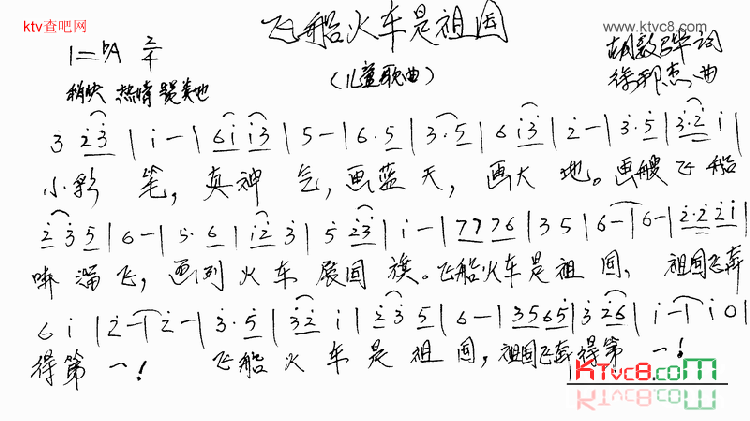 ktv查吧网
www.ktvc8.com
飞船火车是祖国
1=♭A 2/4
(儿童歌曲)
胡敦骅词
徐邦杰曲
稍快 热情 赞美地
3 2̇3̇ | i - | 6i i3̇ | 5 - | 6·5 | 3·5 | 6 i3̇ | 2̇ - | 3̇·5̇ | 3̇·2̇ i |
小彩笔,真神气,画蓝天,画大地。画艘飞船
2̇ 3̇ 5 | 6 - | 5·6 | i2̇ 3 | 5 2̇3̇ | i - | 77 76 | 3 5 | 6 - | 6 - | 2̇·2̇ 2̇i |
啉溜飞,画列火车展国旗。飞船火车是祖国、祖国飞奔
6 i | 2̇ - | 2̇ - | 3̇·5̇ | 3̇2̇ i | 2̇ 3̇ 5 | 6 - | 3565 | 3 2̇6 | i - | i 0 |
得第一!飞船火车是祖国,祖国飞奔得第一!
KTVc8.com